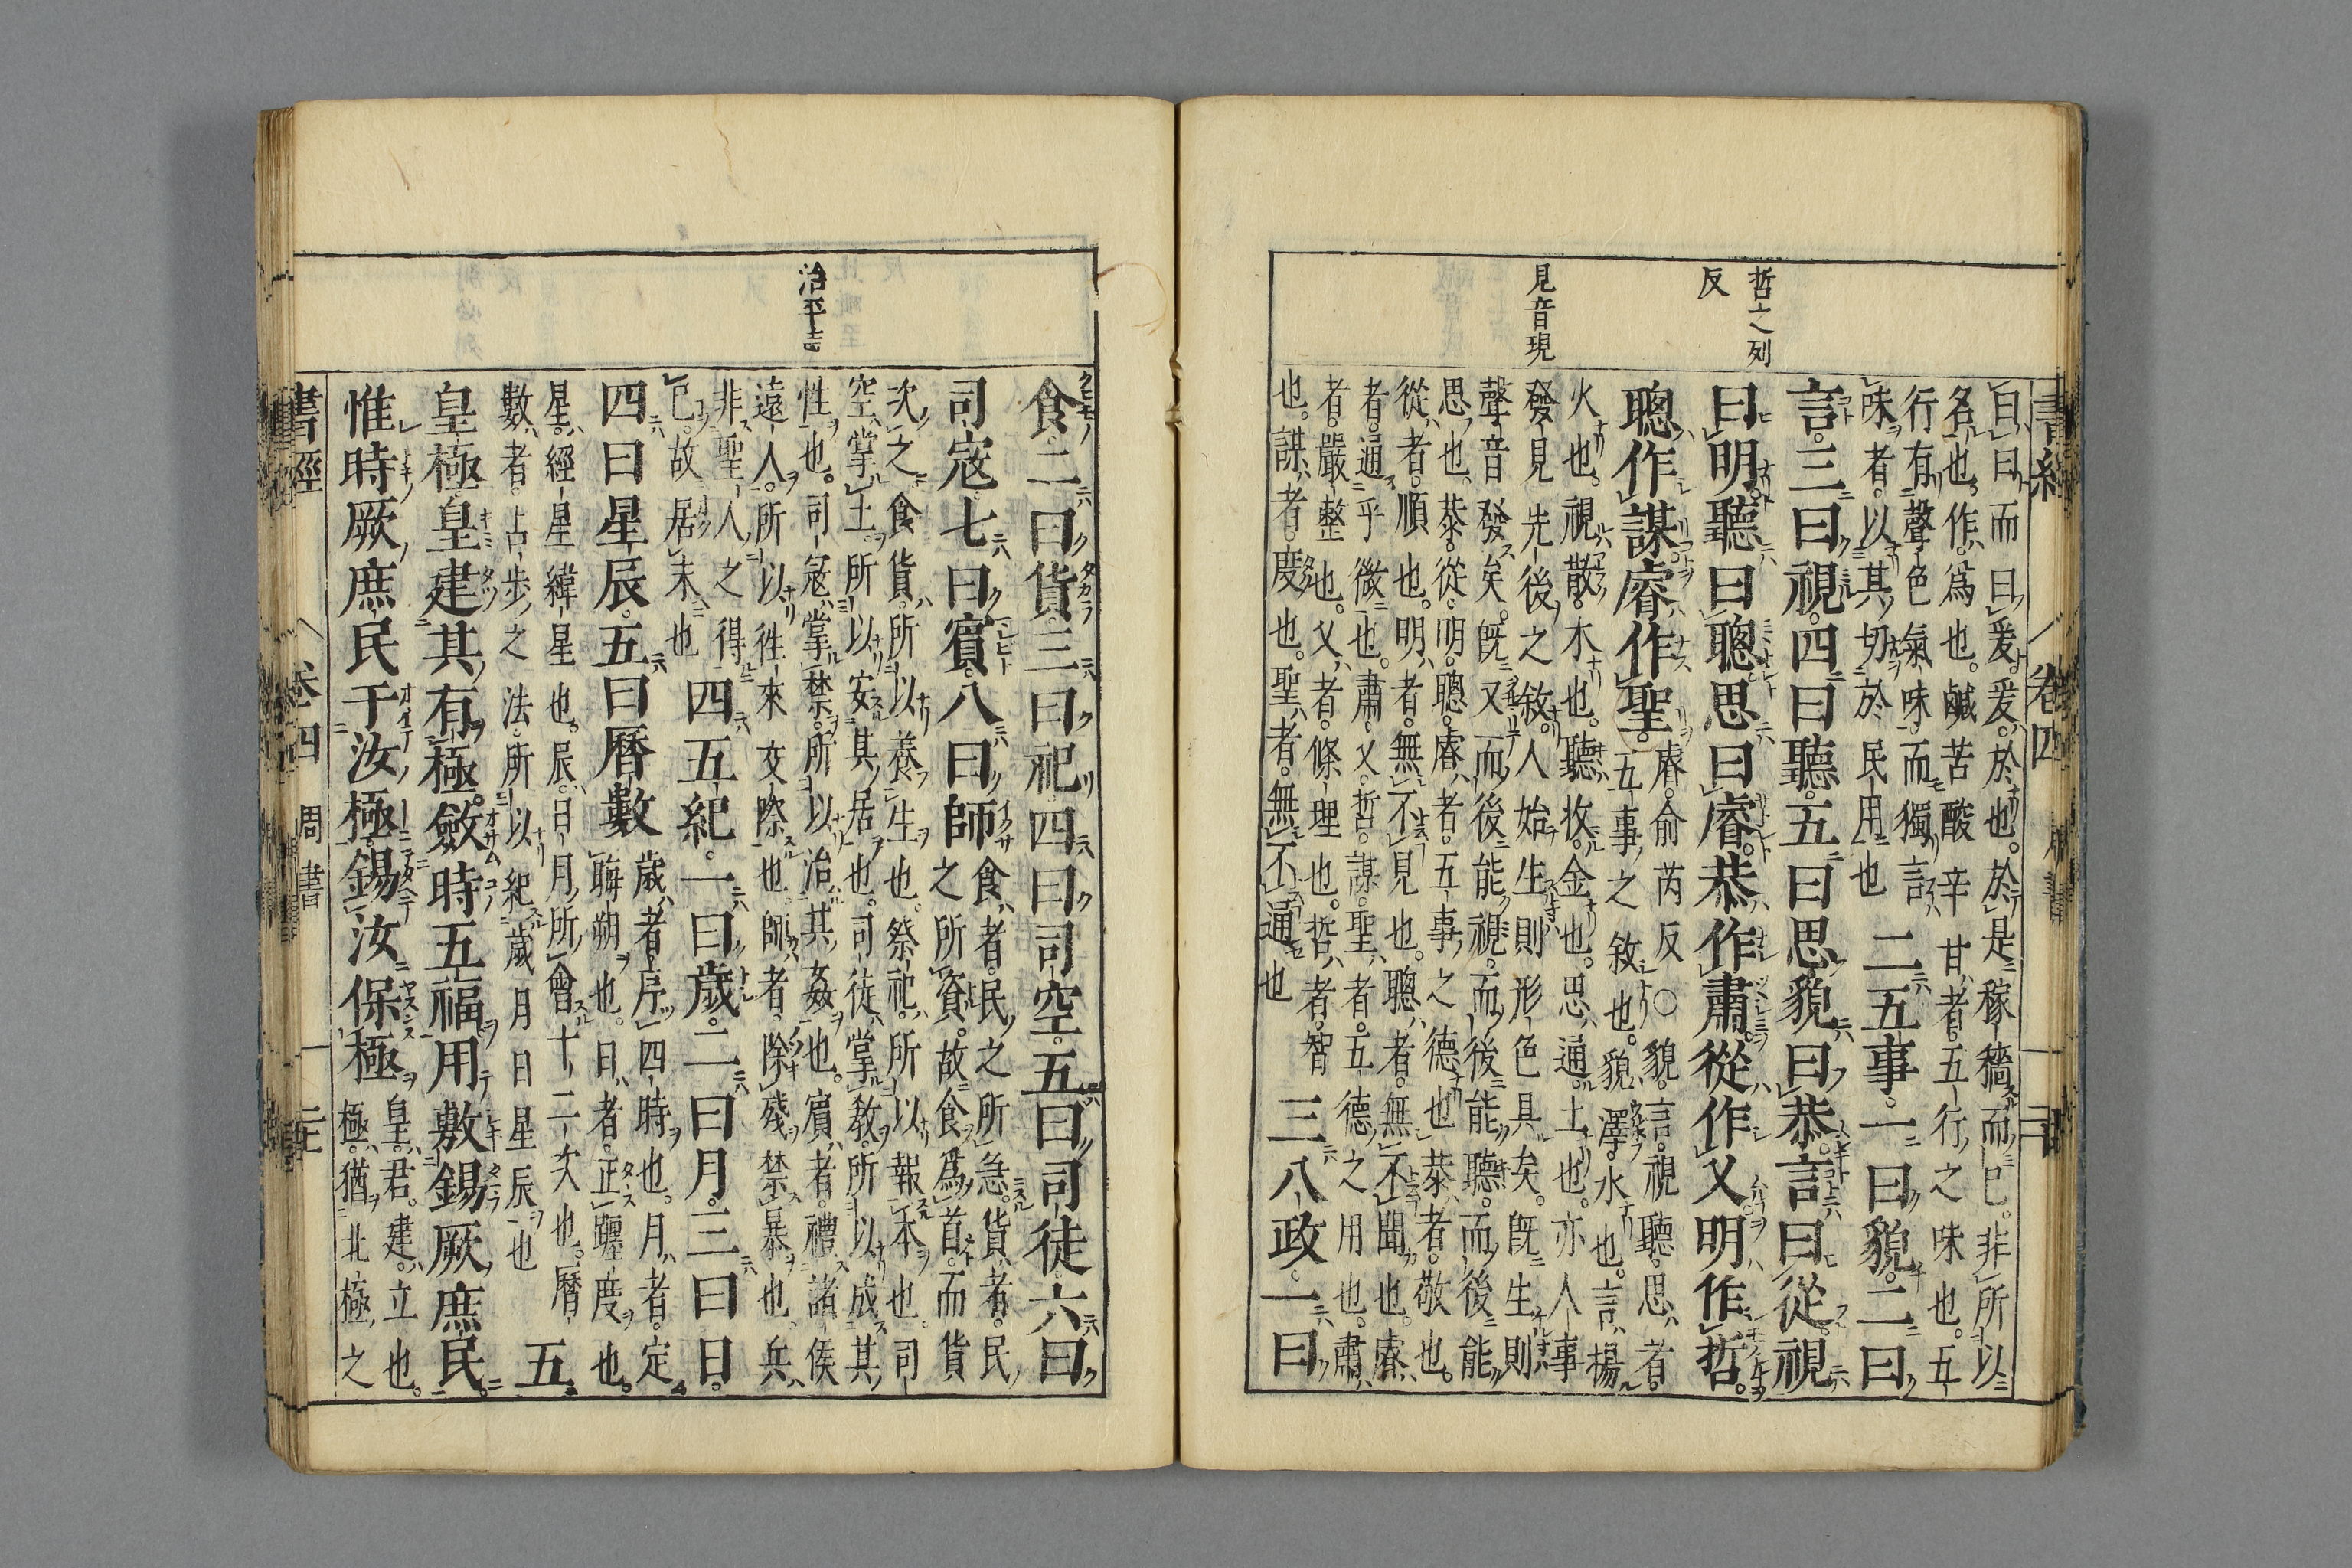 哲之列
反
見音現
曰、曰而曰爰。爰、於也。於是稼穡而已。非所以
名也。作、爲也。鹹苦酸辛甘者。五行之味也。五
行有聲色氣味。而獨言
味者。以其切於民用也
二五事。一曰貌。二曰
言。三曰視。四曰聽。五曰思。貌曰恭。言曰從。視
曰明。聽曰聰。思曰睿。恭作肅。從作乂。明作哲。
聰作謀。睿作聖。
睿。俞芮反○貌。言。視。聽。思、者。
五事之敘也。貌、澤。水也。言、揚
火也。視、散。木也。聽、收。金也。思、通。土也。亦人事
發見先後之敘。人始生則形色具矣。既生則
聲音發矣。既又而後能視。而後能聽。而後能
思也。恭。從。明。聰。睿、者。五事之德也。恭、者。敬也。
從、者。順也。明、者。無不見也。聰、者。無不聞也。睿、
者。通乎微也。肅。乂。哲。謀。聖、者。五德之用也。肅、
者。嚴整也。乂、者。條理也。哲、者。智
也。謀、者。度也。聖、者。無不通也
三八政。一曰
治平声
食。二曰貨。三曰祀。四曰司空。五曰司徒。六曰
司寇。七曰賓。八曰師
食、者。民之所急。貨、者。民
之所資。故食爲首。而貨
次之。食貨、所以養生也。祭祀、所以報本也。司
空、掌土。所以安其居也。司徒、掌敎。所以成其
性也。司寇、掌禁。所以治其姦也。賓、者。禮諸侯
遠人。所以徃來交際也。師、者。除殘禁暴也。兵、
非聖人之得
已。故居末也
四五紀。一曰歲。二曰月。三曰日。
四曰星辰。五曰曆數
歲、者。序四時也。月、者。定
晦朔也。日、者。正躔度也。
星、經星緯星也。辰、日月所會十二次也。曆
數、者。占步之法。所以紀歲月日星辰也
五
皇極。皇建其有極。斂時五福。用敷錫厥庶民。
惟時厥庶民于汝極。錫汝保極
皇、君。建、立也。
極、猶北極之
書經 卷四 周書